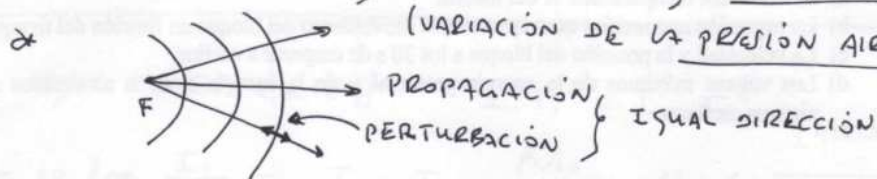 * (VARIACIÓN DE LA PRESIÓN AIR
F PROPAGACIÓN
PERTURBACIÓN } IGUAL DIRECCIÓN